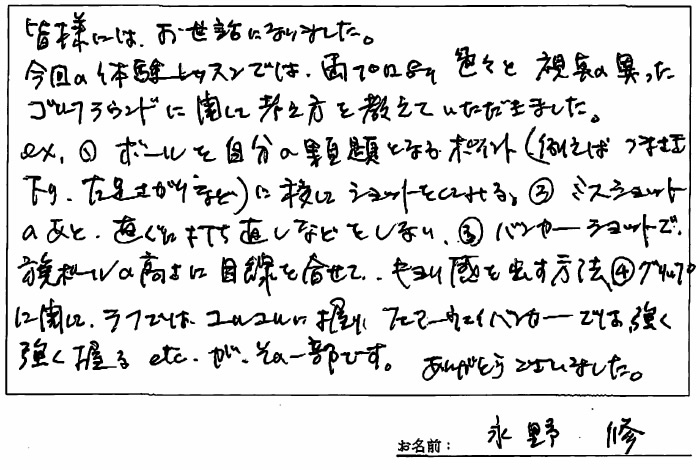 皆様には、お世話になりました。
今回の体験レッスンでは、西プロより色々と視点の異った
ゴルフラウンドに関して考え方を教えていただきました。
ex, ① ボールを自分の課題となるポイント(例えば つま先
下り、左足さがりなど)に移してショットをしてみる。② ミスショット
のあと、直ぐに打ち直しなどをしない、③ バンカーショットで、
旗ポールの高さに目線を合せて、キョリ感を出す方法 ④ グリップ
に関して、ラフでは、ユルユルに握り、フェアーウェイバンカーでは、強く
強く握る etc. が、その一部です。 ありがとうございました。
お名前: 永野 修